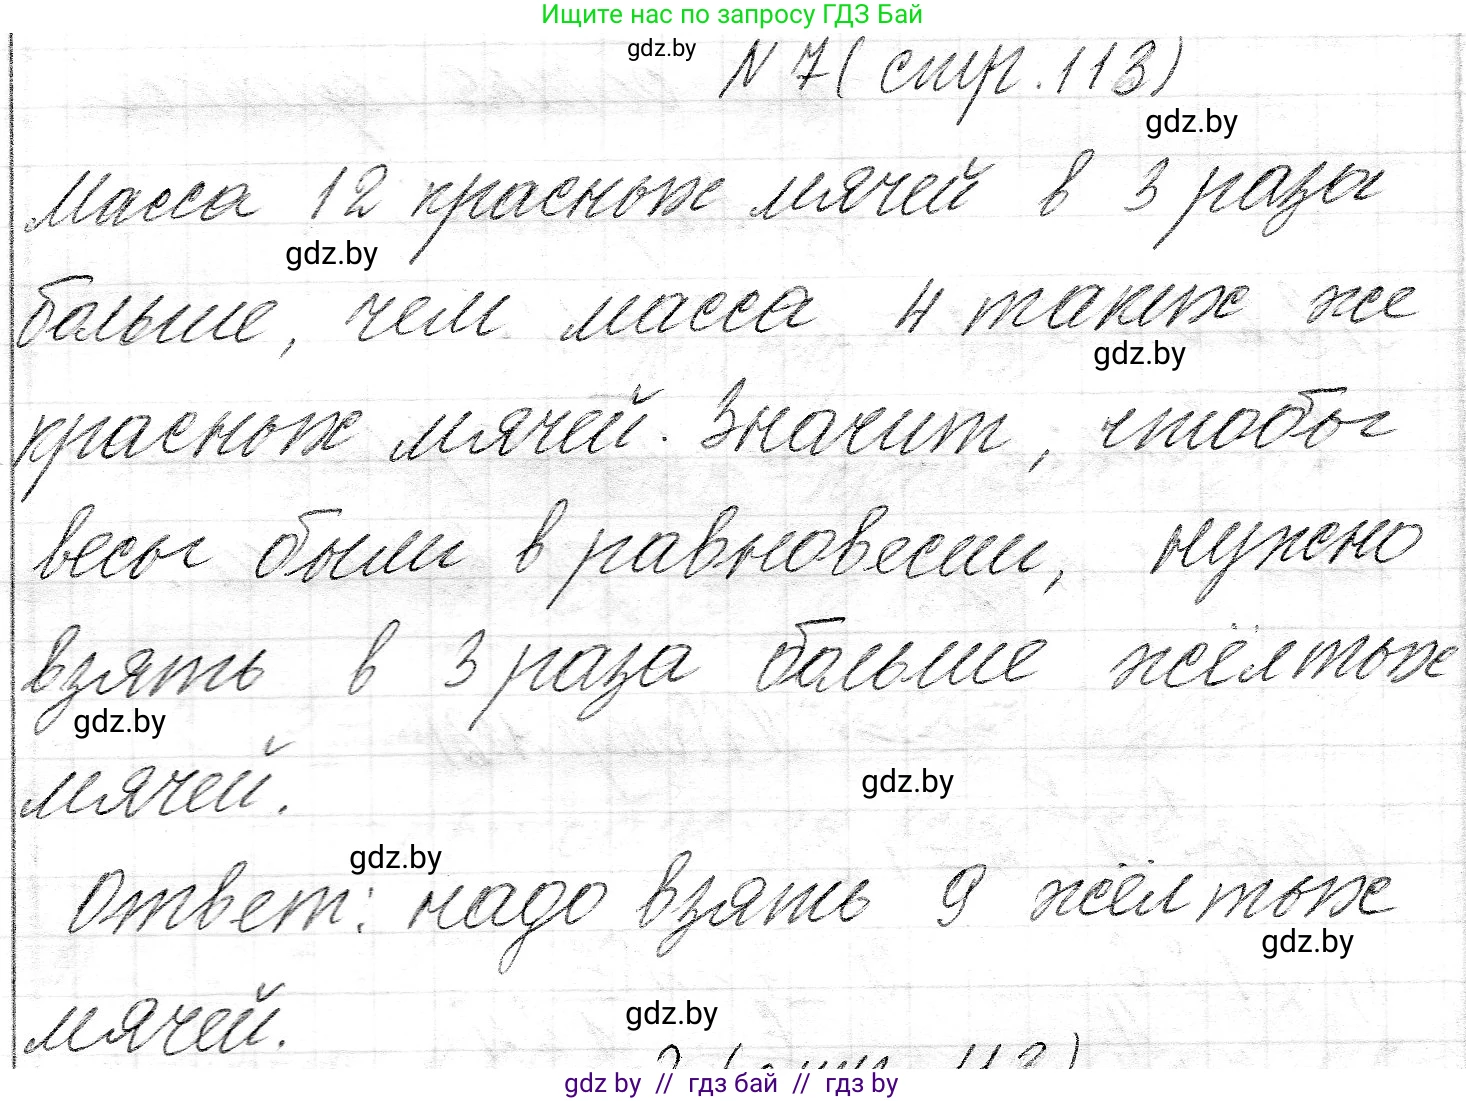 Ищите нас по запросу ГДЗ Бай
gdz.by
N 7 ( стр. 113)
gdz.by
Масса 12 красных мячей в 3 раза
gdz.by
больше, чем масса 4 таких же
gdz.by
красных мячей. Значит, чтобы
весы были в равновесии, нужно
взять в 3 раза больше жёлтых
gdz.by
мячей.
gdz.by
gdz.by
Ответ: надо взять 9 жёлтых
gdz.by
мячей.
gdz.by
gdz by // гдз бай // гдз by